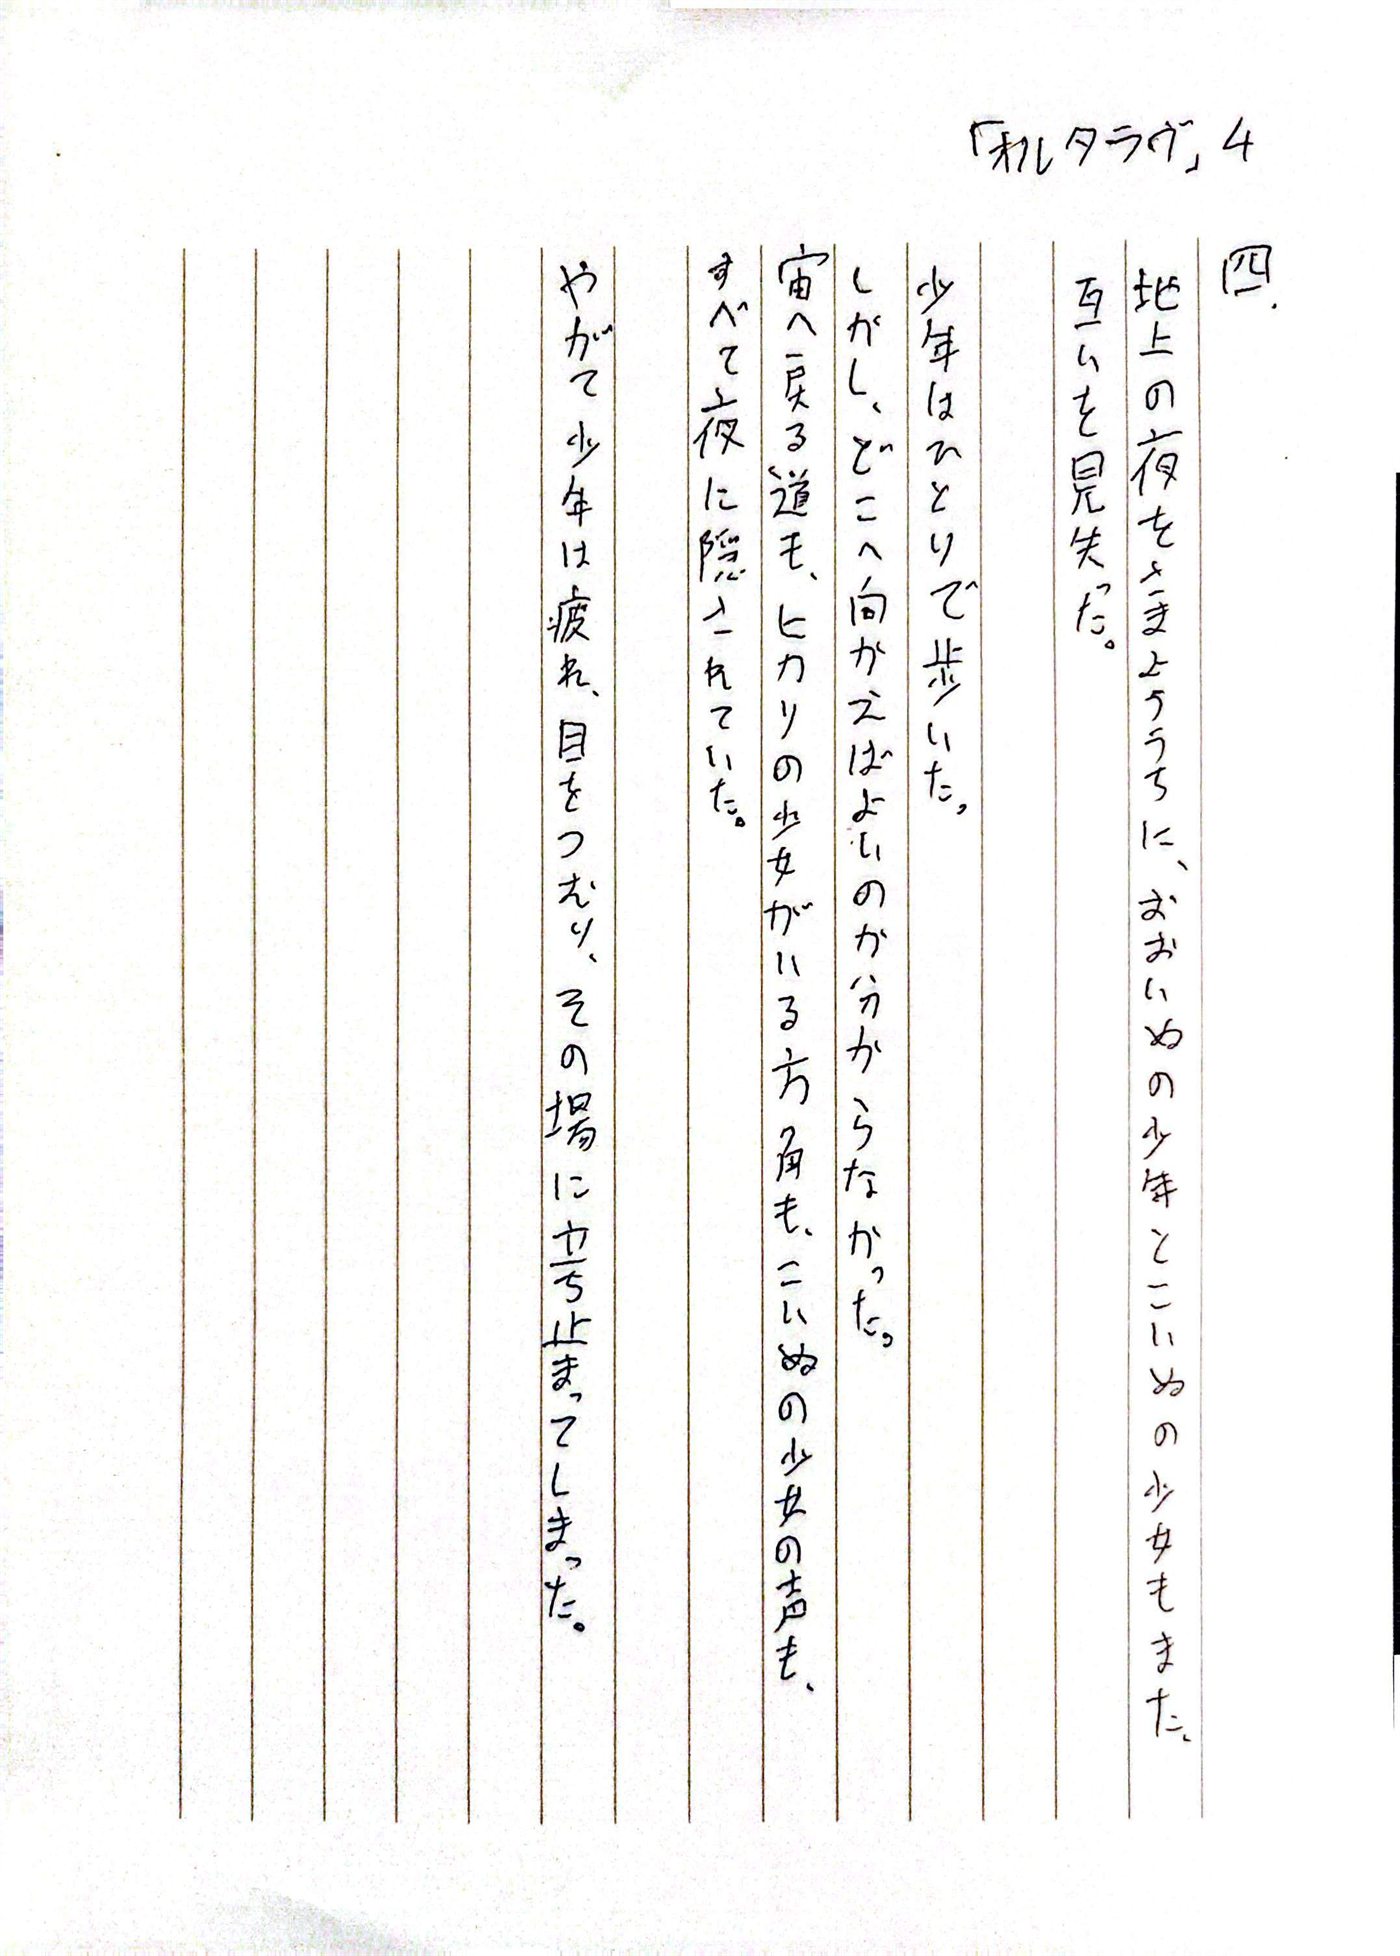 「オルタラヴ」4
四.
地上の夜をさまよううちに、おおいぬの少年とこいぬの少女もまた、
互いを見失った。
少年はひとりで歩いた。
しかし、どこへ向かえばよいのか分からなかった。
宙へ戻る道も、ヒカリの少女がいる方角も、こいぬの少女の声も、
すべて夜に隠されていた。
やがて少年は疲れ、目をつむり、その場に立ち止まってしまった。